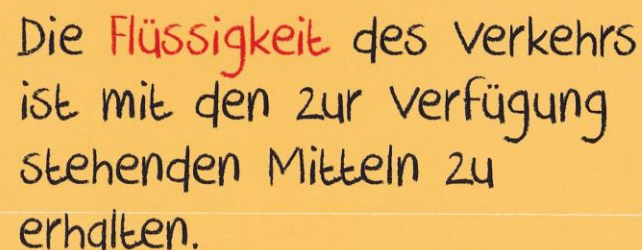 Die Flüssigkeit des Verkehrs
ist mit den zur Verfügung
stehenden Mitteln zu
erhalten.